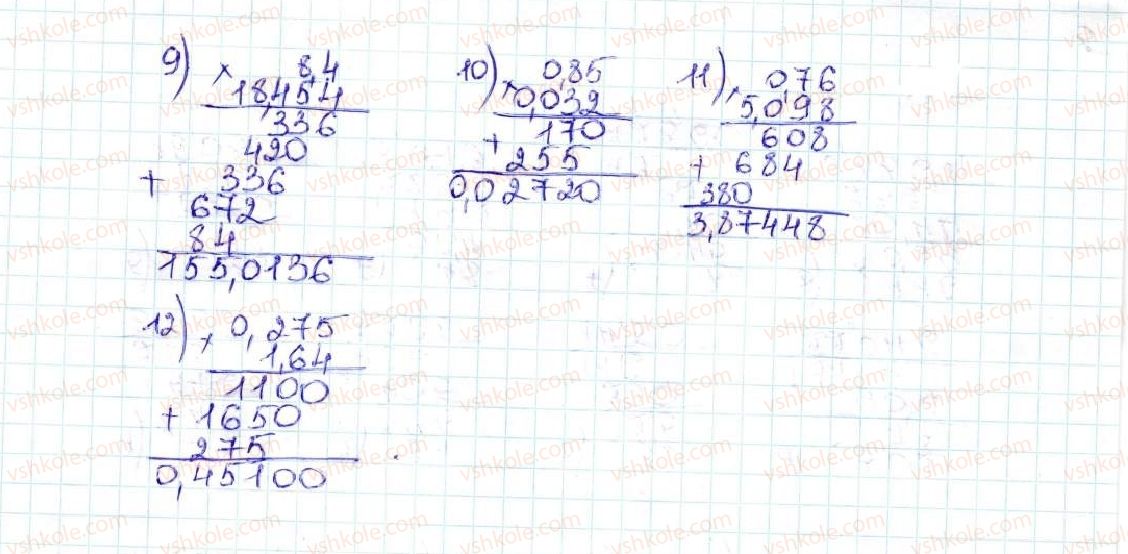 9) × 8,4
18,454
336
420
+ 336
672
84
155,0136
10) × 0,85
0,032
170
+ 255
0,02720
11) × 0,76
5,098
608
+ 684
380
3,87448
12) × 0,275
1,64
1100
+ 1650
275
0,45100